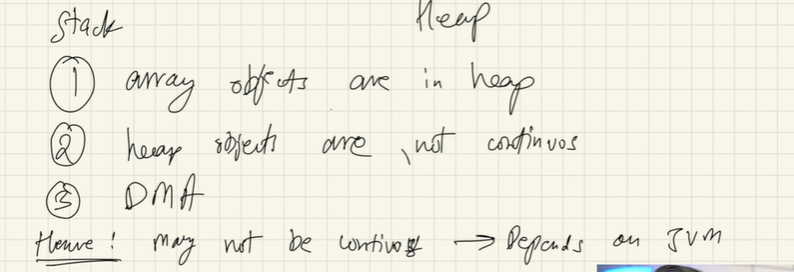 Stack Heap
① array objects are in heap
② heap objects are not continuos
③ DMA
Hence! may not be continos → Depends on JVM